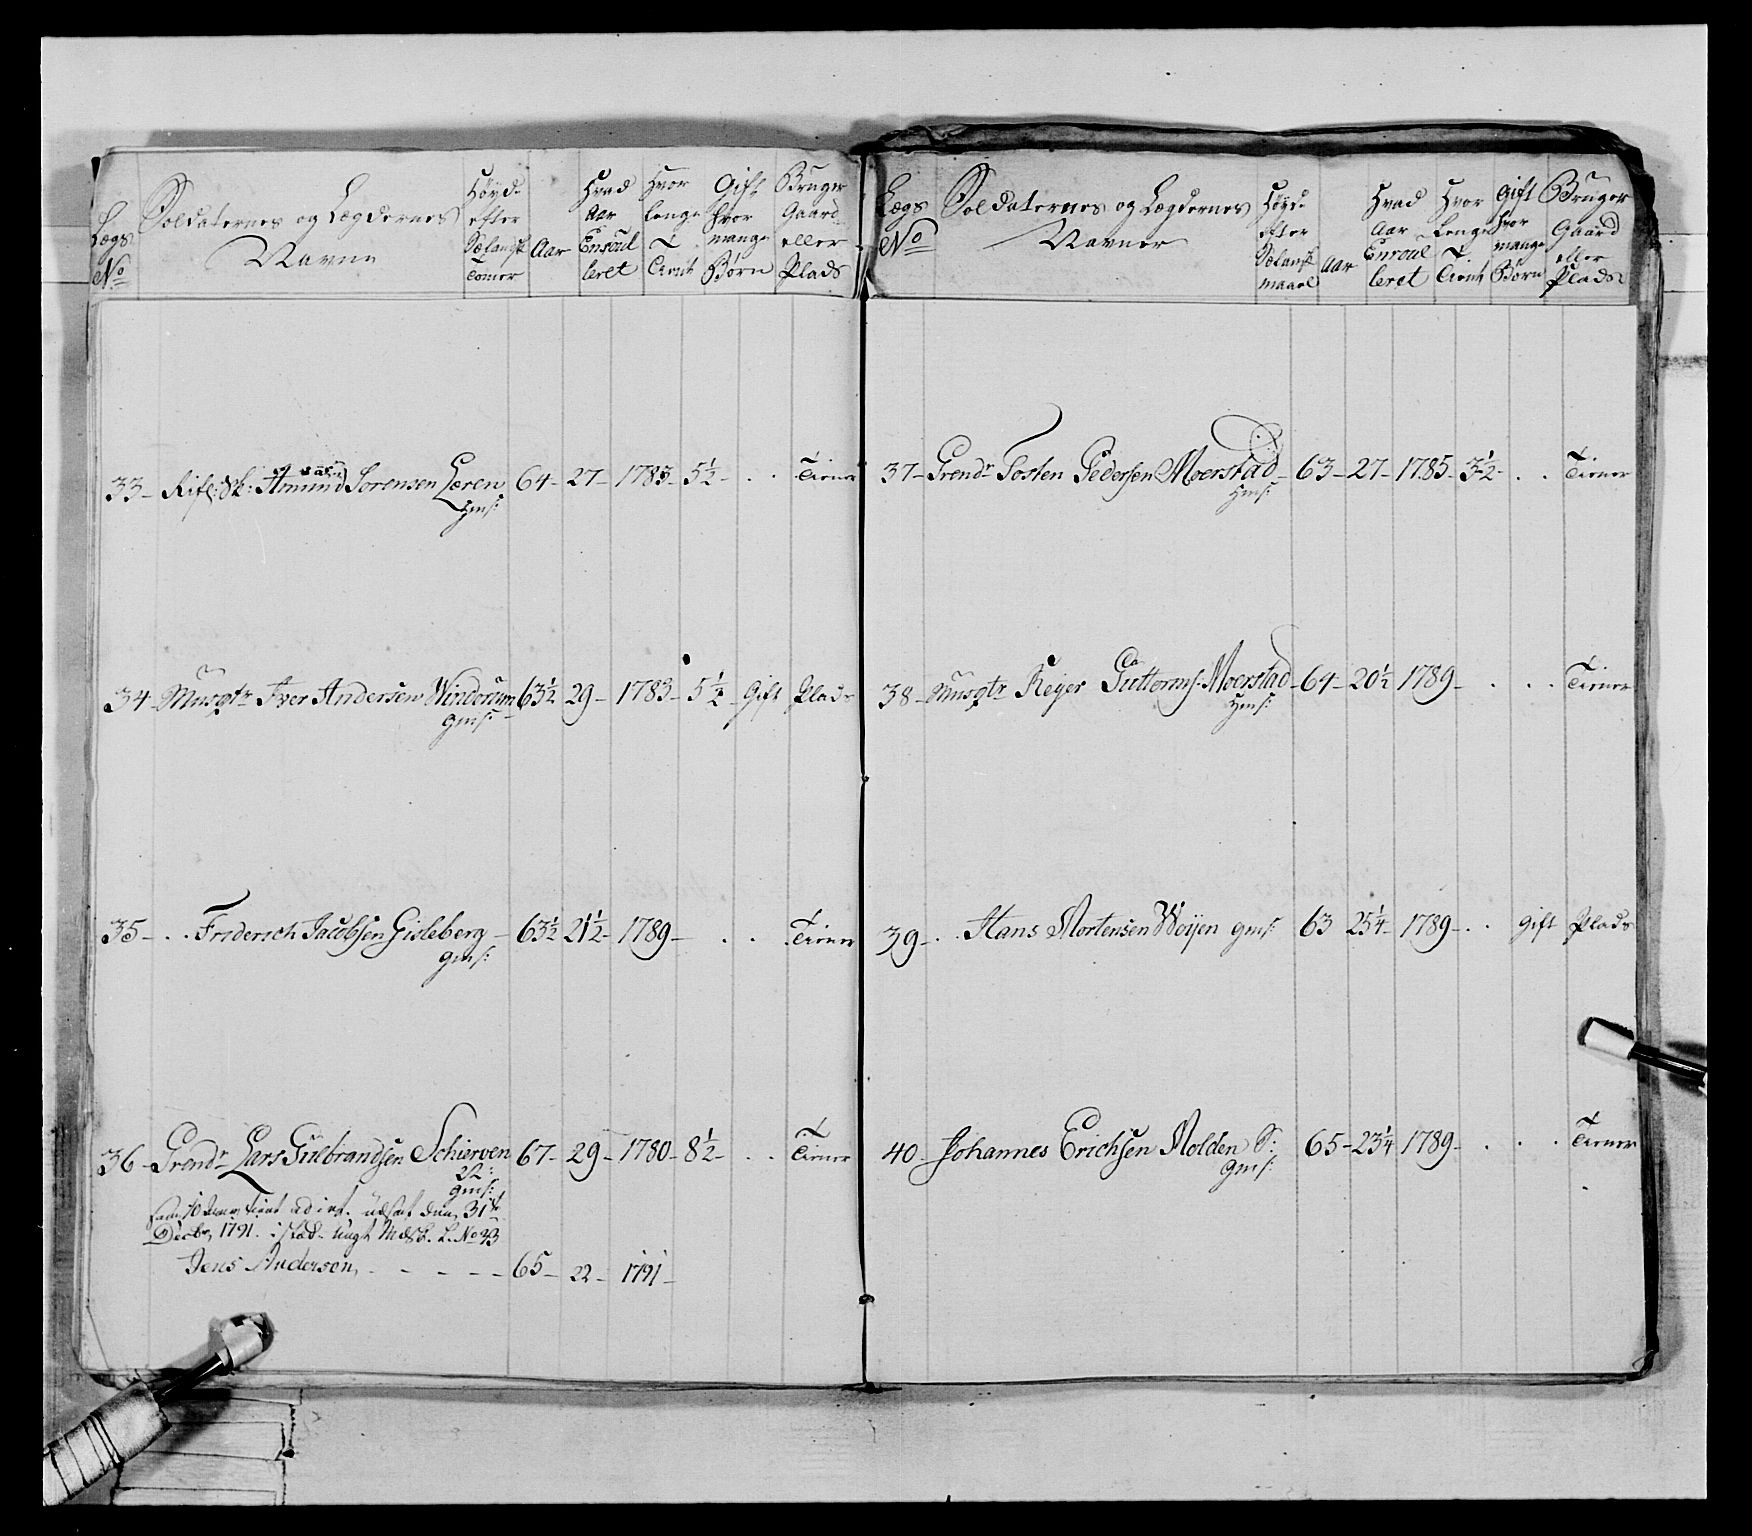 Lægs No
Soldaternes og Lægdernes Navne
Høyde efter Sælandsk Tomer
Aar
Hvad Aar Enroulleret
Hvor lenge Tient
Gift hvor mange Børn
Bruger Gaard eller Plads
33 – Rifl: Sk: Amund Sørensen Læren 64 – 27 – 1783 – 5½ – . . Tiener
gms:
34 – Musqtr Iver Andersen Windorum 63½ 29 – 1783 – 5½ – Gift Plads
gms:
35 – . . Friderich Jacobsen Gisleberg – 63½ 21½ – 1789 – . . Tiener
gms:
36 – Grendr Lars Gulbrandsen Schierven 67 – 29 – 1780 – 8½ – . . Tiener
gms:
udsat den 31te
Decbr 1791. No 43
Jens Andersen, – – – – – 65 – 22 – 1791 –
Lægs No
Soldaternes og Lægdernes Navner
Høyde efter Sælansk maael
Aar
Hvad Aar Enroulleret
Hvor Lenge Tient
Gift hvor mange Børn
Bruger Gaard eller Plads
37 – Grendr Tosten Pedersen Moerstad – 63 – 27 – 1785 – 3½ – . . Tiener
gms:
38 – Musqtr Reyer Guttorms: Moerstad – 64 – 20½ 1789 – . . . Tiener
gms:
39 – . . Hans Mortensen Weijen gms: 63 25¼ – 1789 – . . gift Plads
40 – Johannes Erichsen Molden S: 65 – 23¼ 1789 – . . . Tiener
gms: